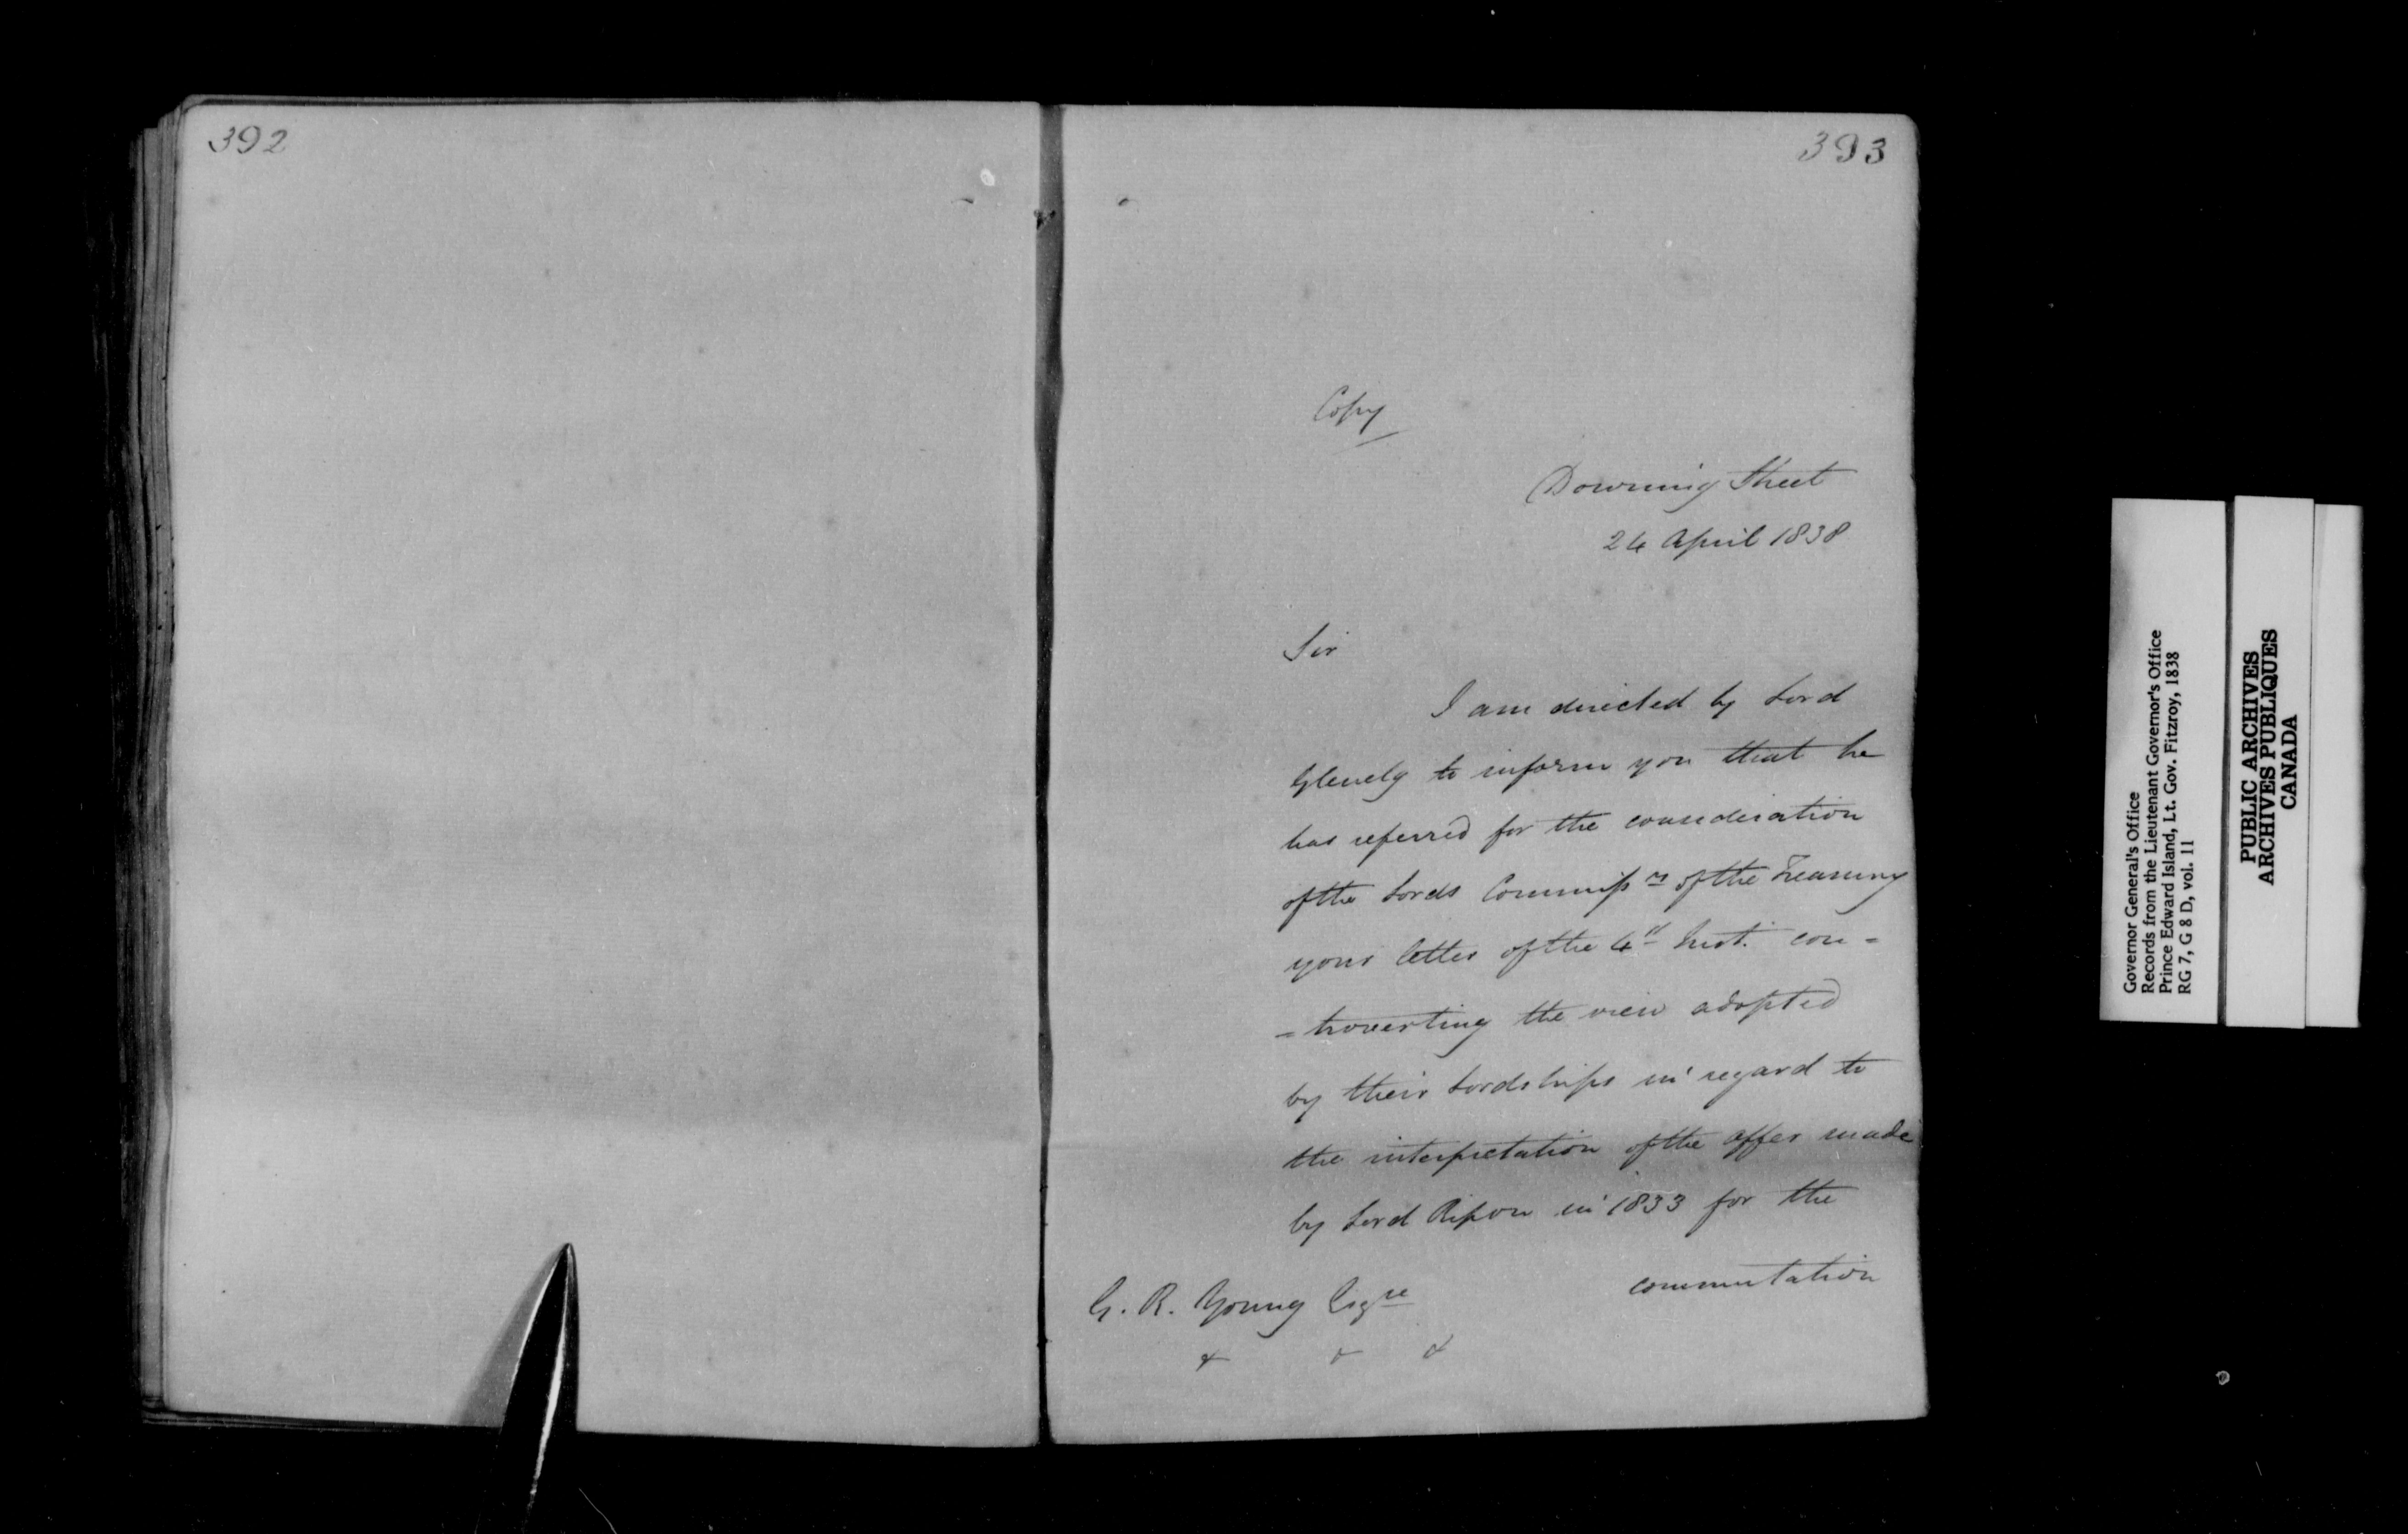 392
393
Copy
Downing Street
24 April 1838
Sir
I am directed by Lord
Glenelg to inform you that he
has referred for the consideration
of the Lords Commissrs of the Treasury
your letter of the 4th Inst. con=
=troverting the view adopted
by their Lordships in regard to
the interpretation of the offer made
by Lord Ripon in 1833 for the
commutation
G. R. Young Esqre
& & &
Governor General's Office
Records from the Lieutenant Governor's Office
Prince Edward Island, Lt. Gov. Fitzroy, 1838
RG 7, G 8 D, vol. 11
PUBLIC ARCHIVES
ARCHIVES PUBLIQUES
CANADA